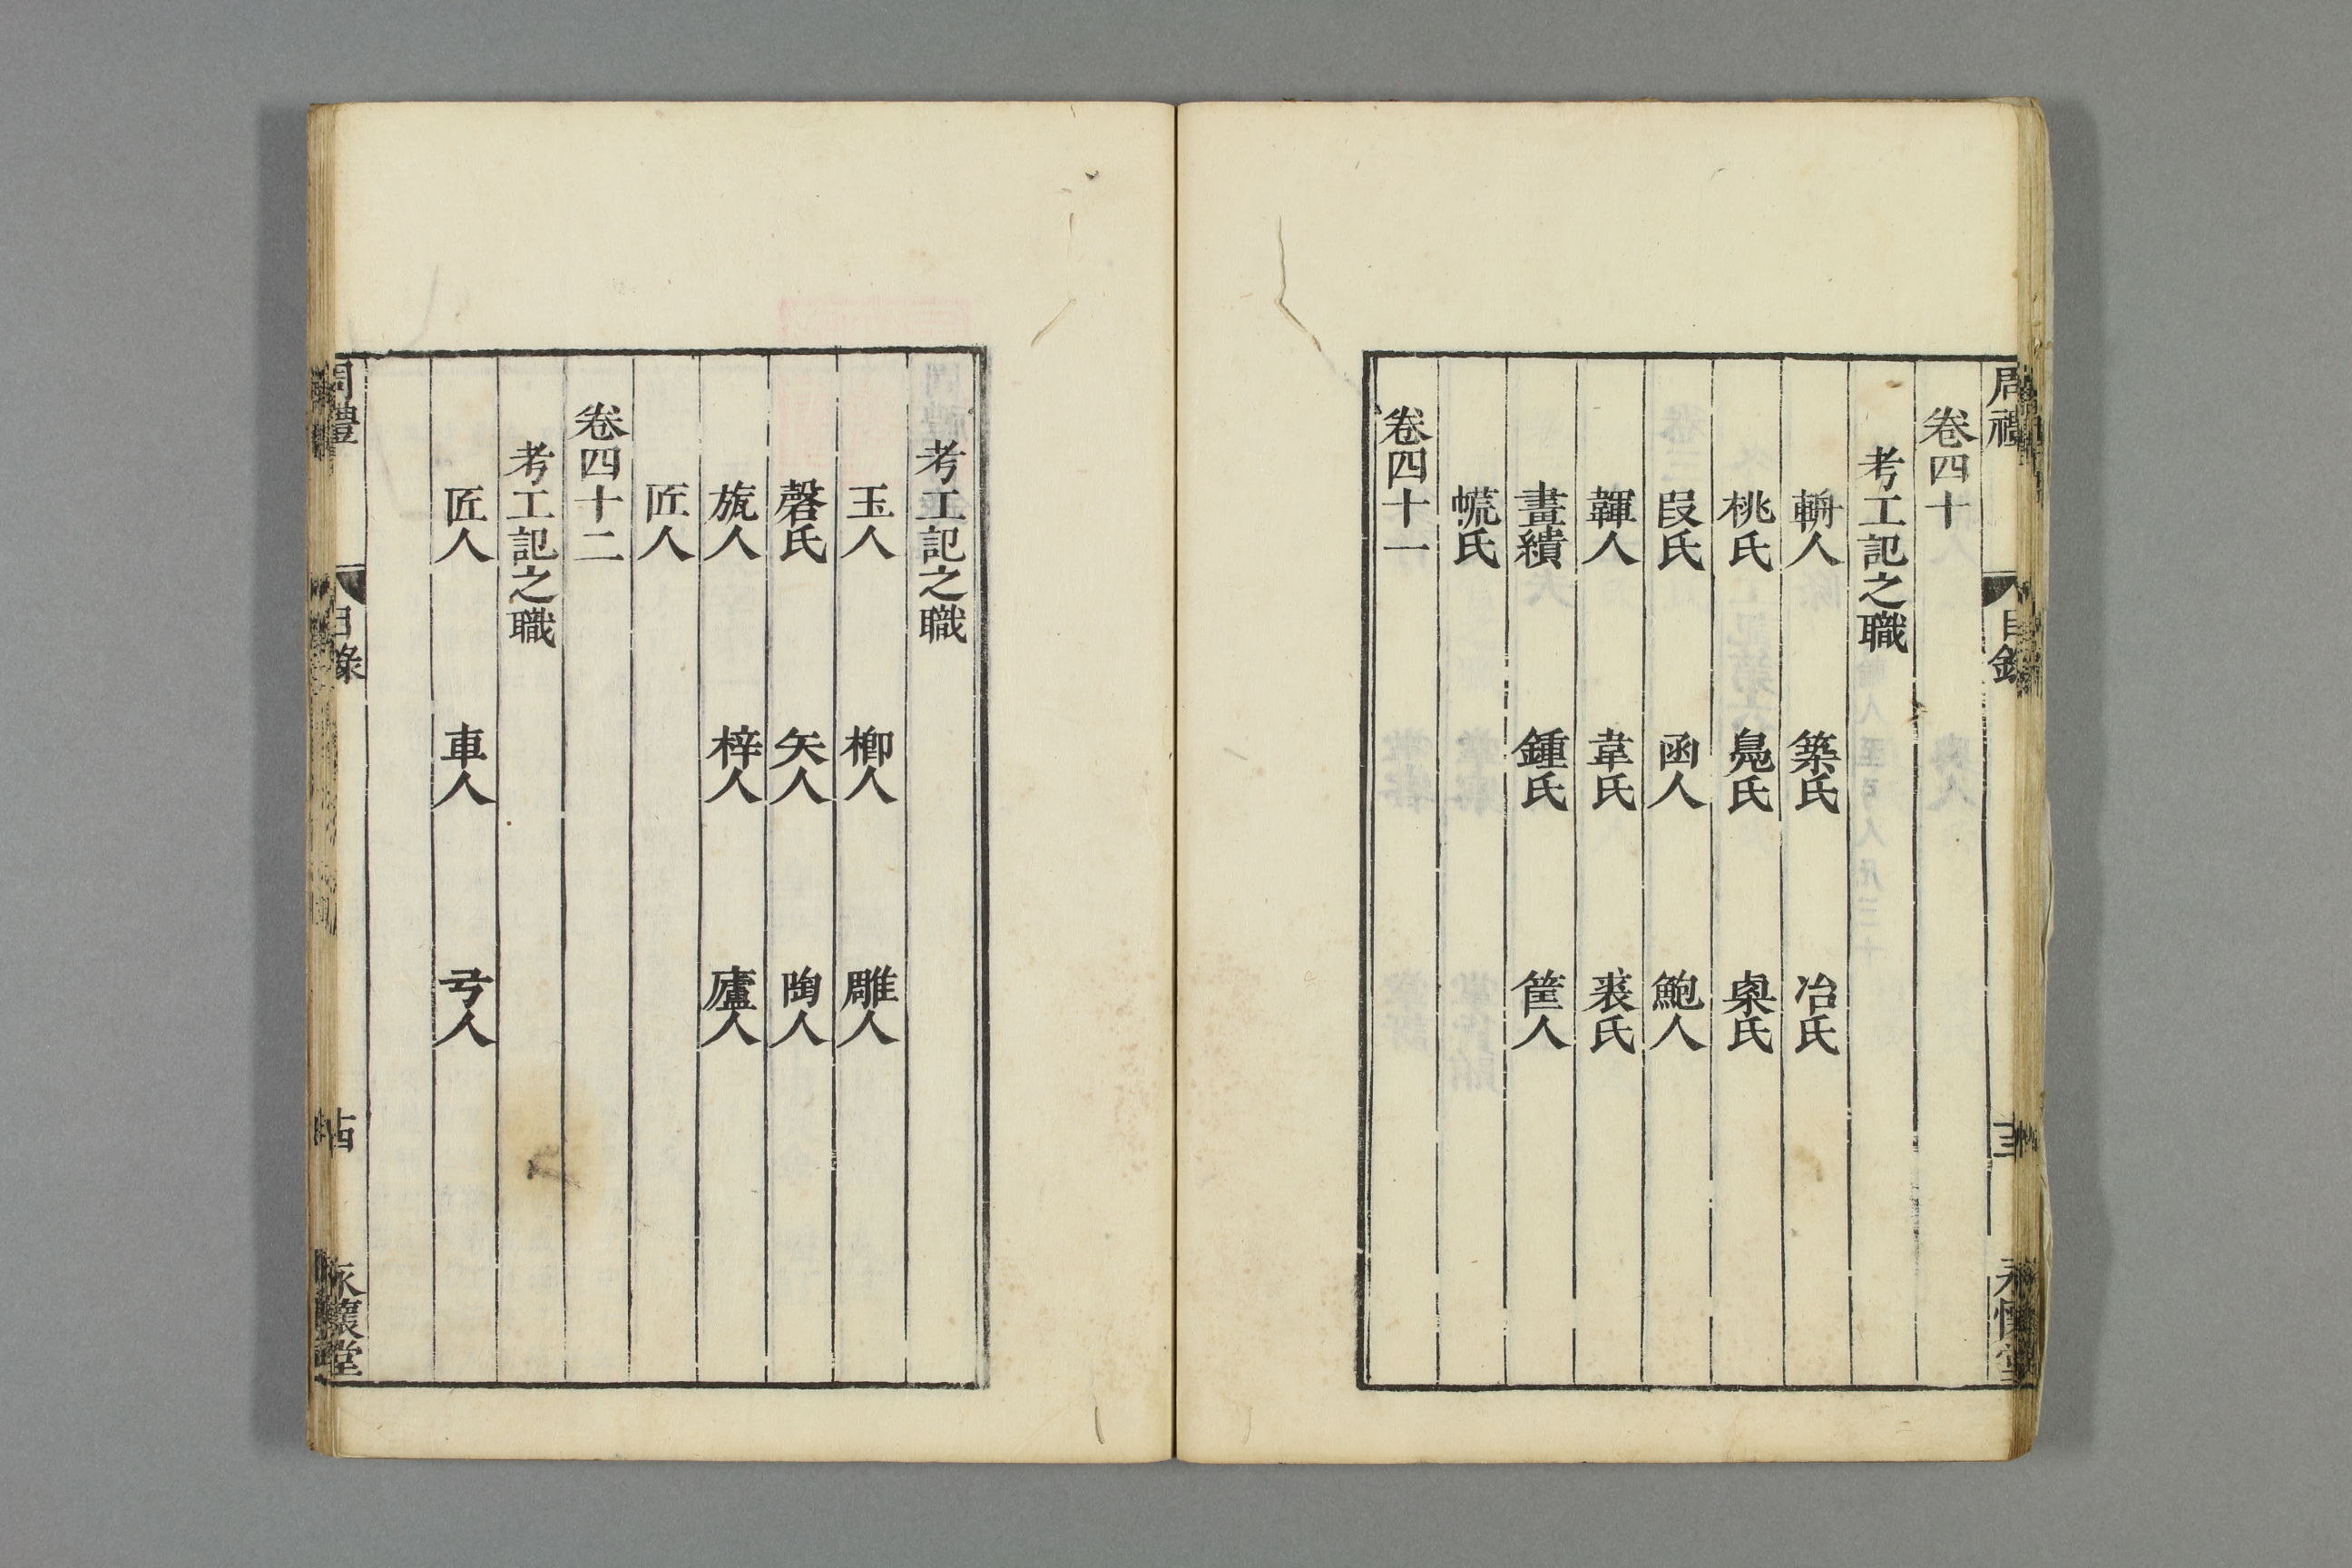 周禮
目錄
卷四十
考工記之職
輈人 築氏 冶氏
桃氏 鳧氏 㮚氏
段氏 函人 鮑人
韗人 韋氏 裘氏
畫繢 鍾氏 筐人
㡛氏
卷四十一
考工記之職
玉人 楖人 雕人
磬氏 矢人 陶人
旊人 梓人 廬人
匠人
卷四十二
考工記之職
匠人 車人 弓人
周禮
目錄
永懷堂